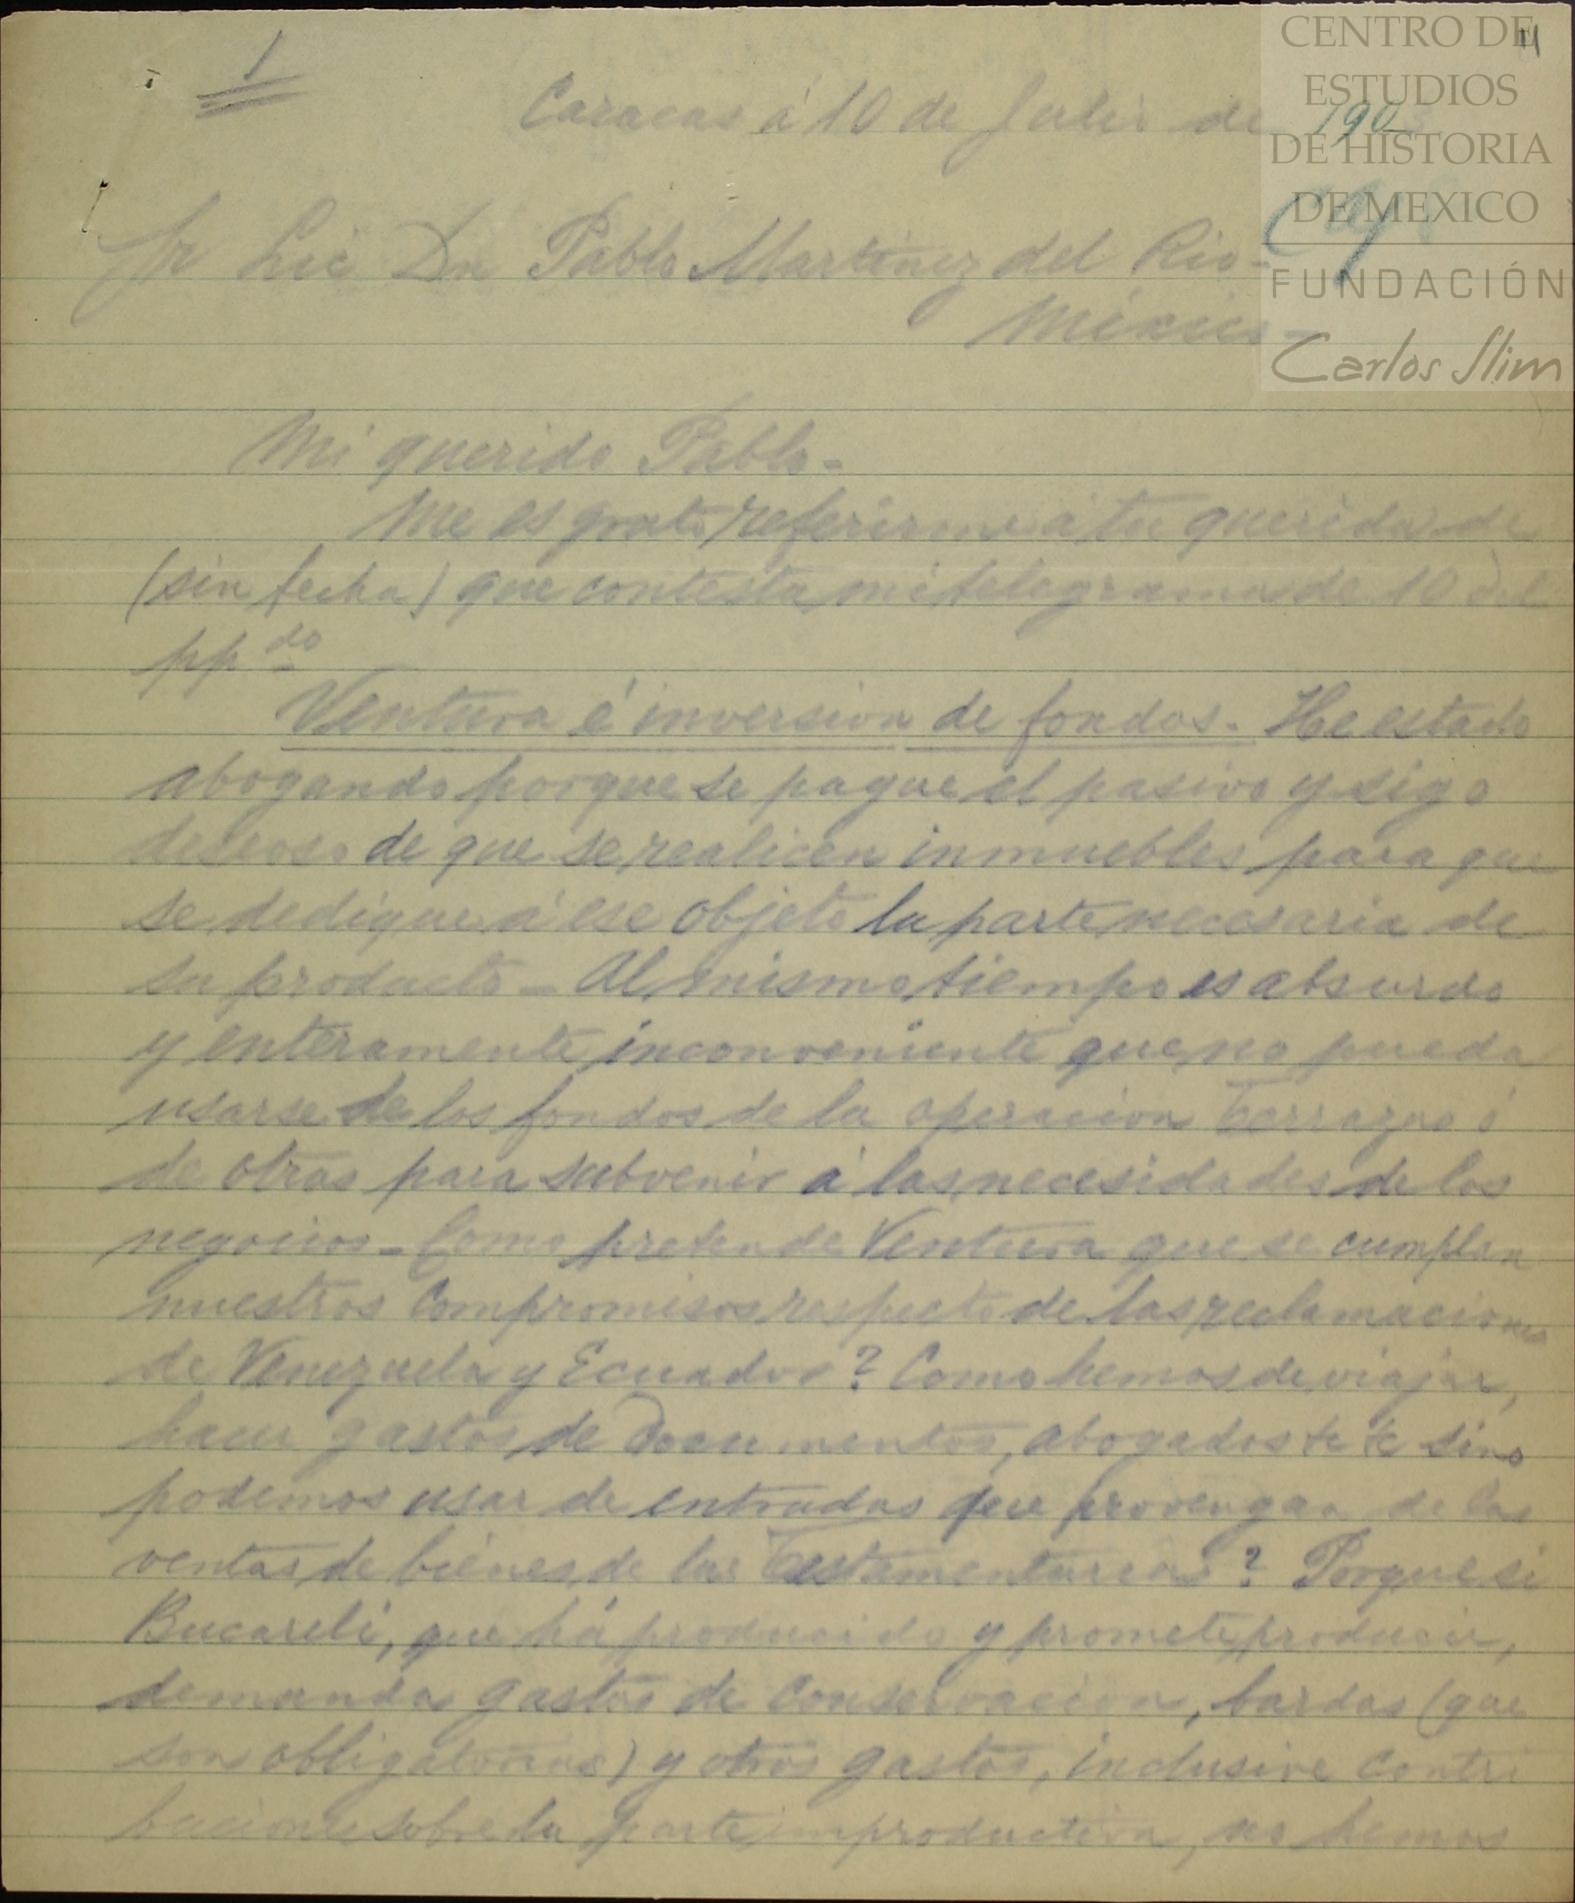 1
11
CENTRO DE
ESTUDIOS
DE HISTORIA
DE MEXICO
FUNDACIÓN
Carlos Slim
Caracas á 10 de Julio de 190
Sr Lic Dn Pablo Martinez del Rio-
México-
Mi querido Pablo-
Me es grato referirme á tu querida de
(sin fecha) que contesta mi telegrama de 10 del
pp do
Ventura é inversion de fondos. He estado
abogando porque se pague el pasivo y sigo
deseoso de que se realicen inmuebles para que
se dedique á ese objeto la parte necesaria de
su producto - Al mismo tiempo es absurdo
y enteramente inconveniente que no pueda
usarse de los fondos de la operacion Terrazas ó
de otras para subvenir á las necesidades de los
negocios - Como pretende Ventura que se cumplan
nuestros compromisos respecto de las reclamaciones
de Venezuela y Ecuador? Como hemos de viajar,
hacer gastos de documentos, abogados &c &c sino
podemos usar de entradas que provengan de las
ventas de bienes de las Testamentarias? Porque si
Bucareli, que há producido y promete producir,
demanda gastos de conservacion, bardas (que
son obligatorias) y otros gastos, inclusive contri
buciones sobre la parte improductiva, no hemos